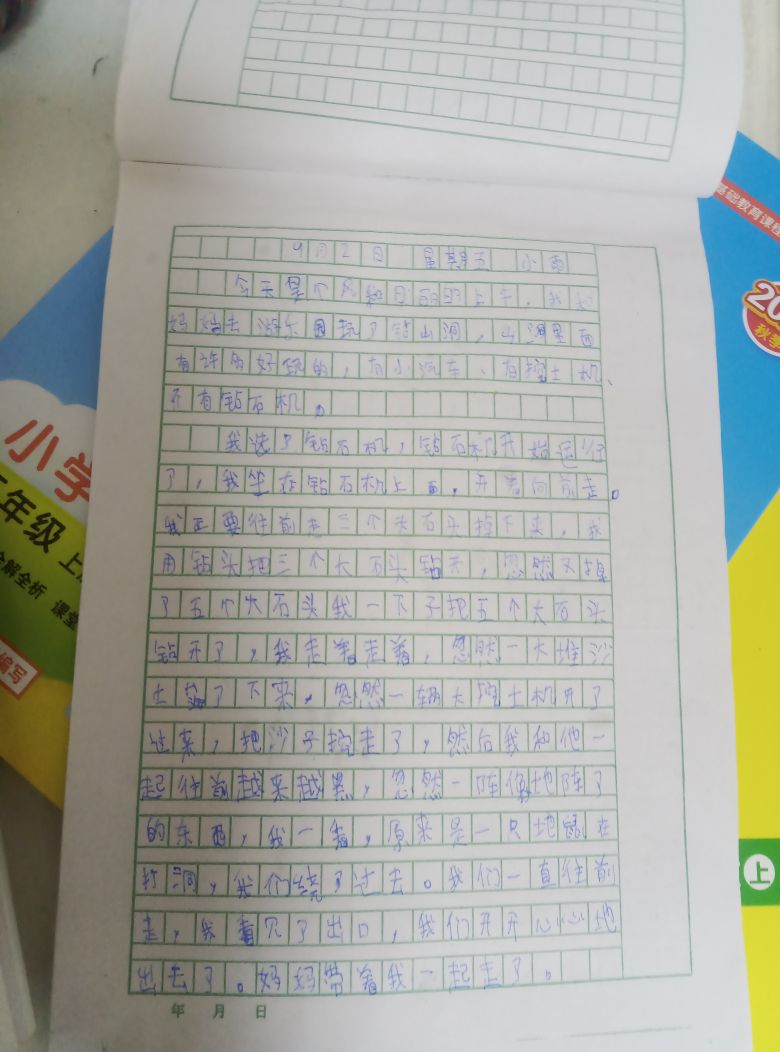 9月2日 星期五 小雨
今天是个风和日丽的上午,我和
妈妈去游乐园玩了钻山洞,山洞里面
有许多好玩的,有小汽车、有挖土机、
还有钻石机。
我选了钻石机,钻石机开始运行
了,我坐在钻石机上面,开着向前走。
我正要往前走三个大石头掉下来,我
用钻头把三个大石头钻开,忽然又掉
了五个大石头我一下子把五个大石头
钻开了,我走着走着,忽然一大堆沙
土 了下来,忽然一辆大挖土机开了
过来,把沙子挖走了,然后我和他一
起往前越来越黑,忽然一阵像地阵了
的东西,我一看,原来是一只地鼠在
打洞,我们绕了过去。我们一直往前
走,我看见了出口,我们开开心心地
出去了。妈妈带着我一起走了。
年 月 日
小学
年级 上
全解全析 课堂
编写
基础教育课程
20
秋季
上